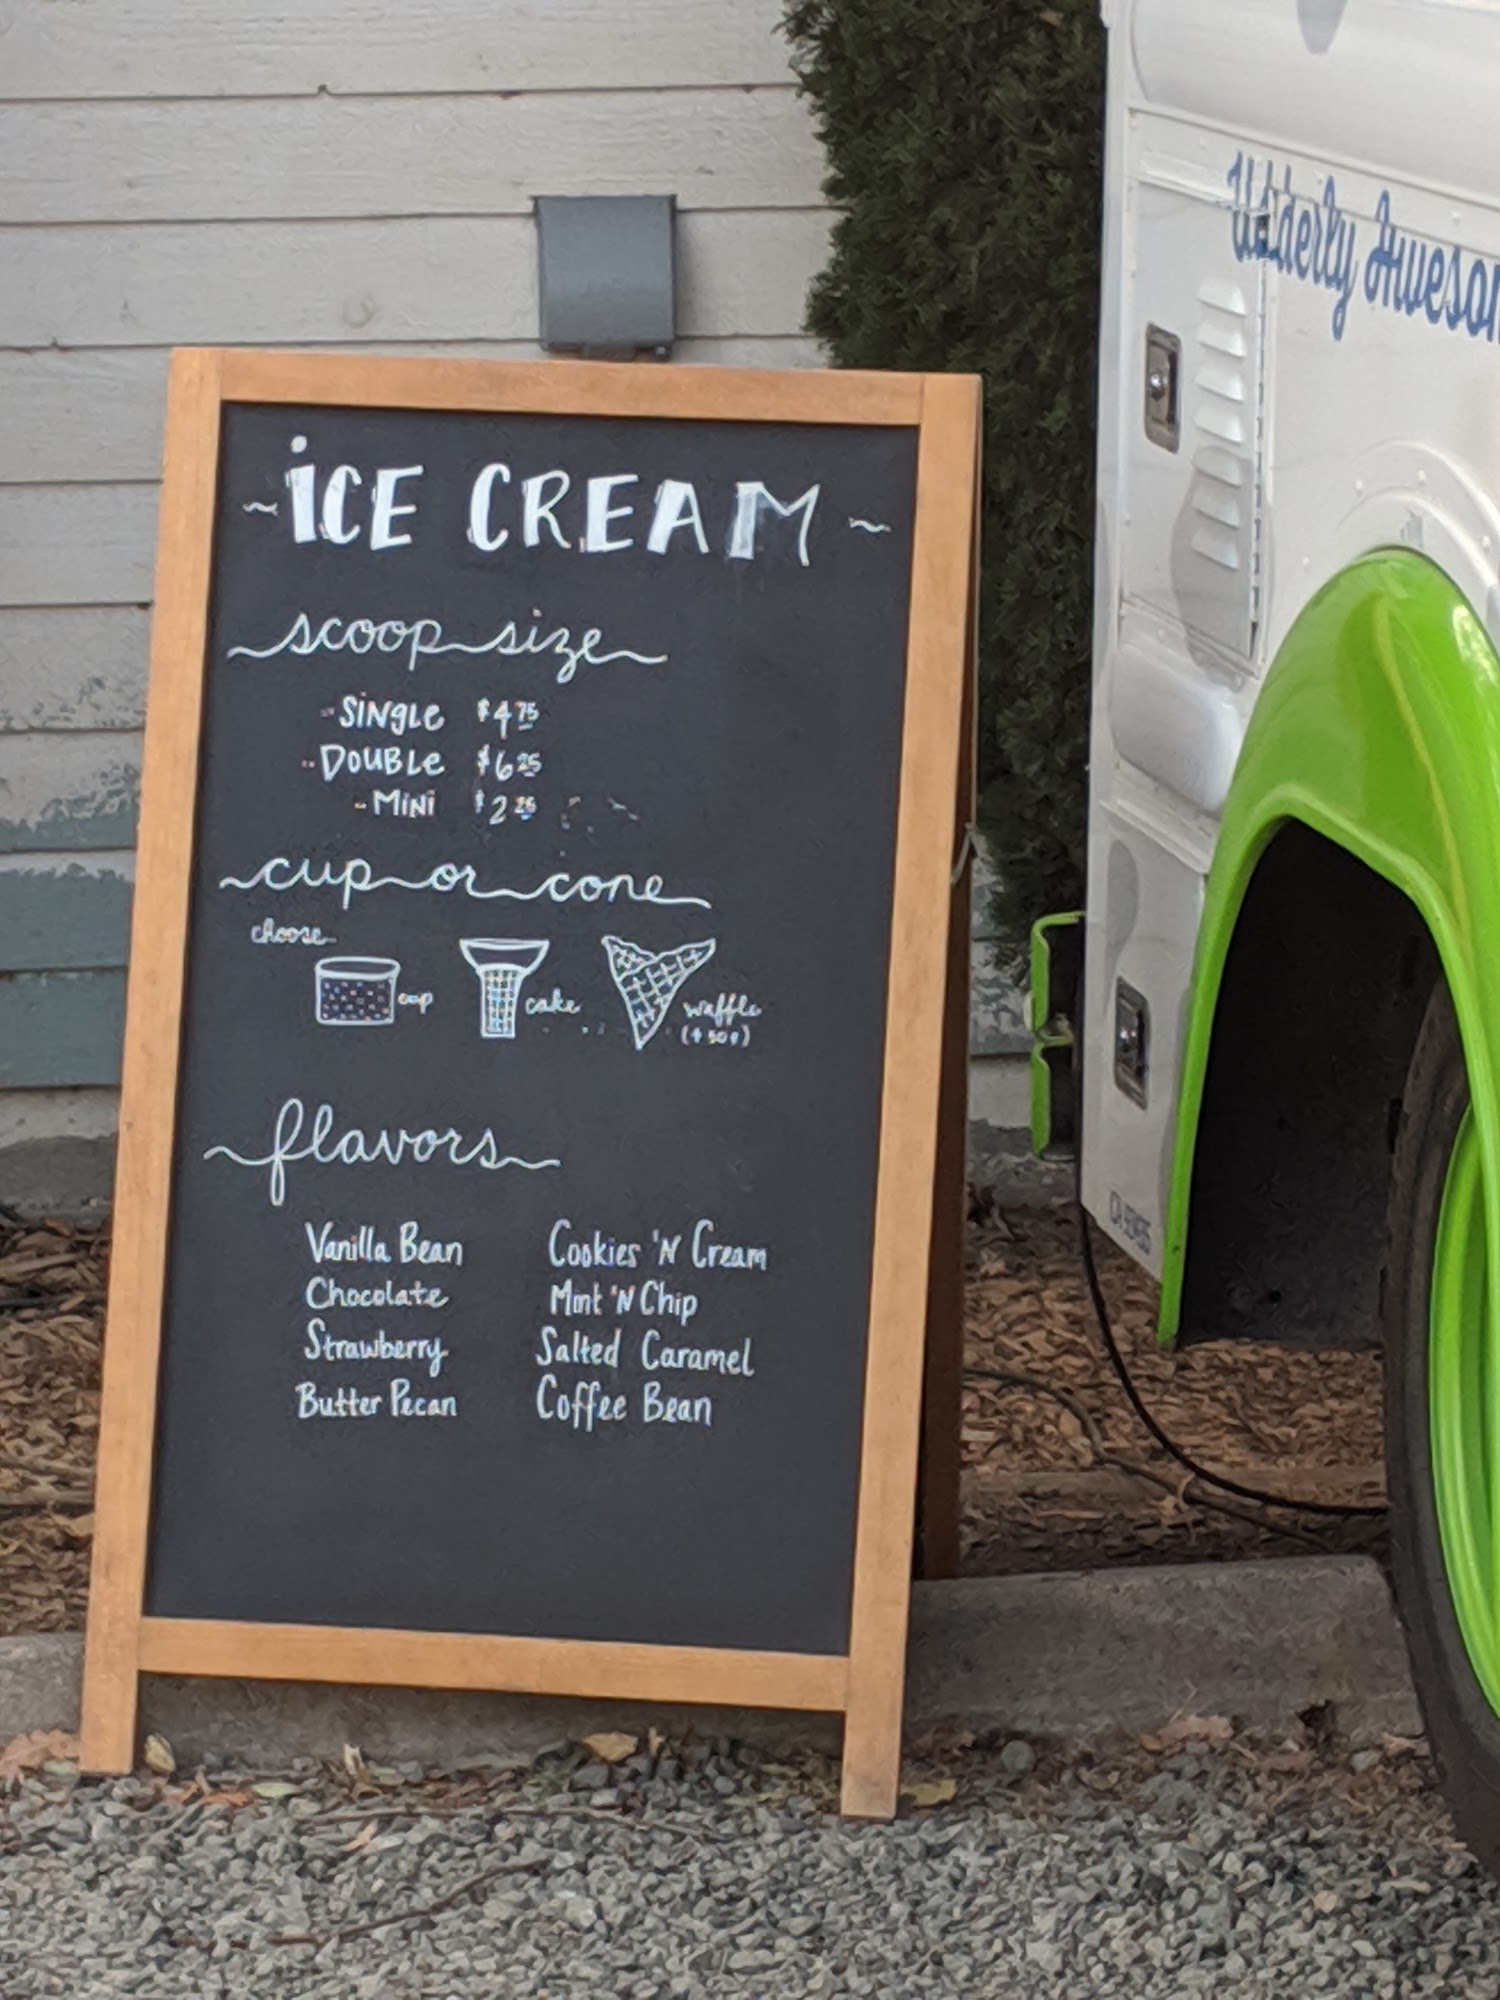 ~ iCE CREAM ~
scoop size
- SiNgLE $4.75
- DOUBLE $6.25
- MiNi $2.25
cup or cone
choose
cup
cake
waffle
(+50¢)
flavors
Vanilla Bean
Chocolate
Strawberry
Butter Pecan
Cookies 'N Cream
Mint 'N Chip
Salted Caramel
Coffee Bean
Udderly Aweson